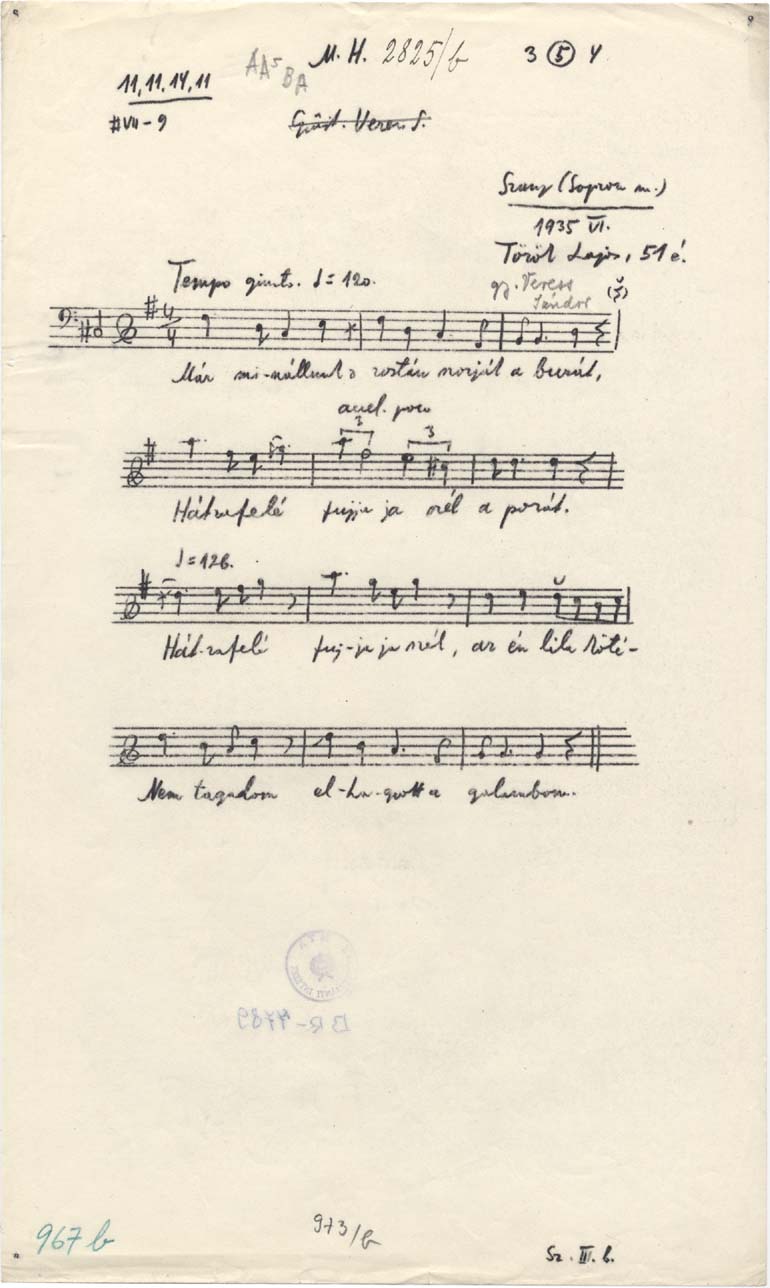 M. H. 2825/b
3 5 4
AA⁵BA
11, 11, 14, 11
#VII-9
Gyűjt. Veress S.
Szany (Sopron m.)
1935 VI.
Török Lajos, 51 é.
gy. Veress
Sándor
Tempo giusto. ♩=120.
4/4
Már mi-nállunk a rostán a búzát,
accel. poco
3 3
Hátrafelé fujja ja szél a porát.
♩=126.
Hát-rafelé fuj-ja ja szél, az én lila köté-
Nem tagadom el-ha-gyott a galambom.
BR-4789
967 b
973/b
Sz. III. b.